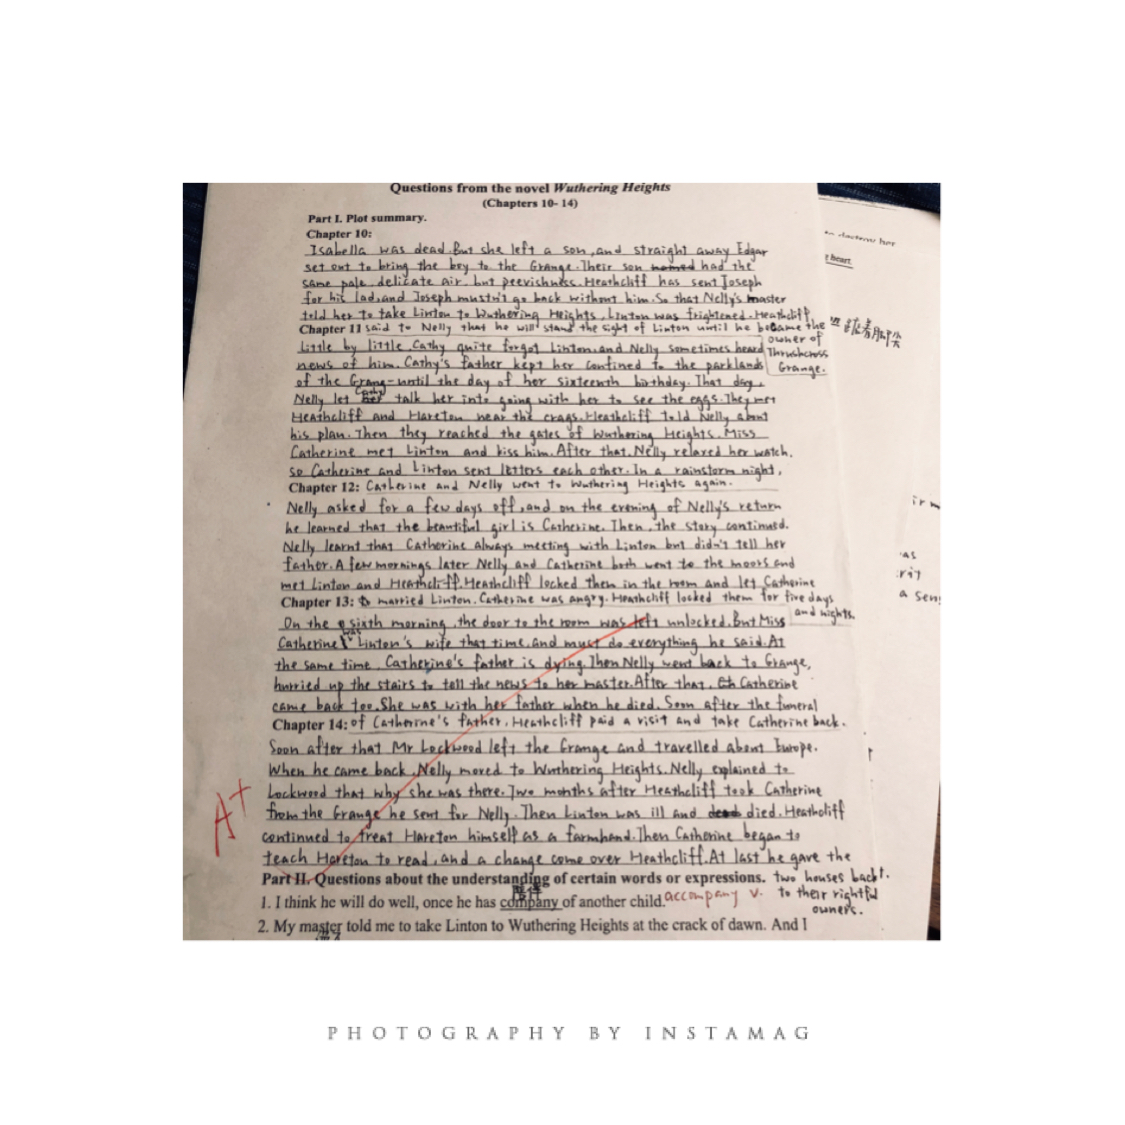 Questions from the novel Wuthering Heights
(Chapters 10- 14)
Part I. Plot summary.
Chapter 10:
Isabella was dead. But she left a son, and straight away Edgar
set out to bring the boy to the Grange. Their son named had the
same pale, delicate air, but peevishness. Heathcliff has sent Joseph
for his lad, and Joseph mustn't go back without him. So that Nelly's master
told her to take Linton to Wuthering Heights. Linton was frightened. Heathcliff
Chapter 11 said to Nelly that he will stand the sight of Linton until he became the
owner of
Thrushcross
Grange.
Little by little, Cathy quite forgot Linton, and Nelly sometimes heard
news of him. Cathy's father kept her confined to the parklands
of the Grang-until the day of her sixteenth birthday. That day,
Nelly let Cathy talk her into going with her to see the eggs. They met
Heathcliff and Hareton near the crags. Heathcliff told Nelly about
his plan. Then they reached the gates of Wuthering Heights. Miss
Catherine met Linton and kiss him. After that, Nelly relaxed her watch,
so Catherine and Linton sent letters each other. In a rainstorm night,
Chapter 12: Catherine and Nelly went to Wuthering Heights again.
Nelly asked for a few days off, and on the evening of Nelly's return
he learned that the beautiful girl is Catherine. Then, the story continued.
Nelly learnt that Catherine always meeting with Linton but didn't tell her
father. A few mornings later Nelly and Catherine both went to the moors and
met Linton and Heathcliff. Heathcliff locked them in the room and let Catherine
Chapter 13: married Linton. Catherine was angry. Heathcliff locked them for five days
and nights.
On the sixth morning, the door to the room was left unlocked. But Miss
Catherine was Linton's wife that time, and must do everything he said. At
the same time, Catherine's father is dying. Then Nelly went back to Grange,
hurried up the stairs to tell the news to her master. After that, Catherine
came back too. She was with her father when he died. Soon after the funeral
Chapter 14: of Catherine's father, Heathcliff paid a visit and take Catherine back.
Soon after that Mr Lockwood left the Grange and travelled about Europe.
When he came back, Nelly moved to Wuthering Heights. Nelly explained to
Lockwood that why she was there. Two months after Heathcliff took Catherine
from the Grange he sent for Nelly. Then Linton was ill and dead died. Heathcliff
continued to treat Hareton himself as a farmhand. Then Catherine began to
teach Hareton to read, and a change come over Heathcliff. At last he gave the
two houses back
to their rightful
owners.
A+
Part II. Questions about the understanding of certain words or expressions.
陪伴
1. I think he will do well, once he has company of another child. accompany v.
2. My master told me to take Linton to Wuthering Heights at the crack of dawn. And I
to destroy her
heart.
as
a sens